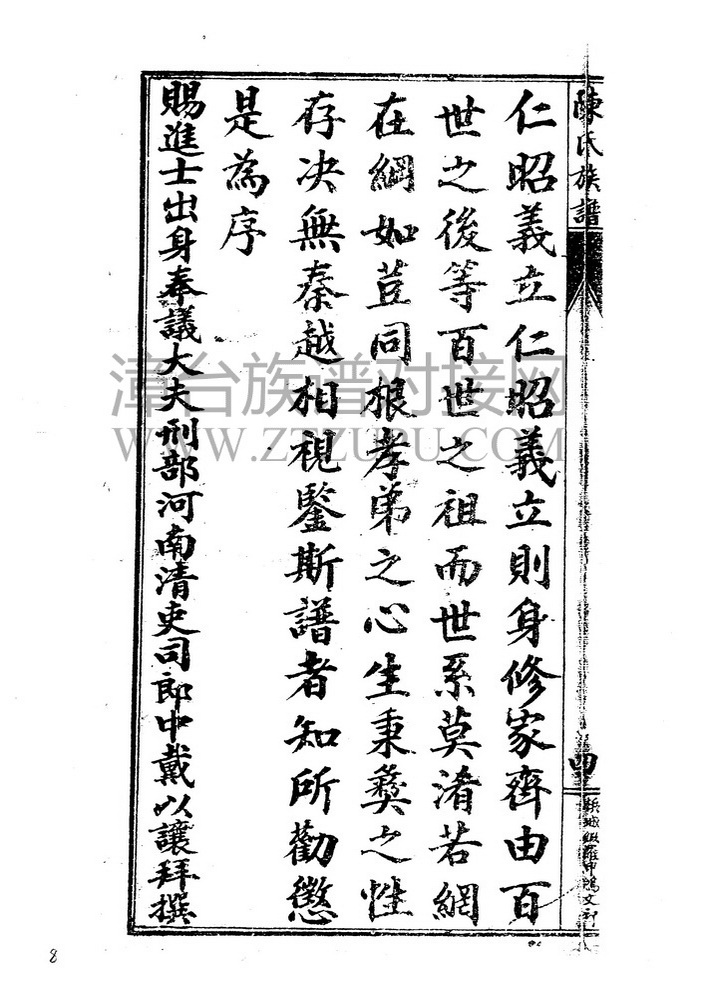 陳氏族譜
四
仁昭義立仁昭義立則身修家齊由百
世之後等百世之祖而世系莫淆若網
在綱如荳同根孝弟之心生秉彜之性
存决無秦越相視鑒斯譜者知所勸懲
是為序
賜進士出身奉議大夫刑部河南清吏司郎中戴以讓拜撰
漳台族谱对接网
WWW.ZTZUPU.COM
8